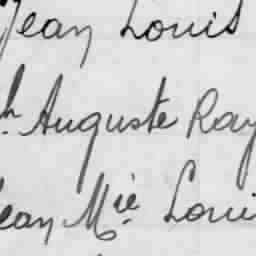 Jean Louis
h Auguste Ray
Jean Mie Loui